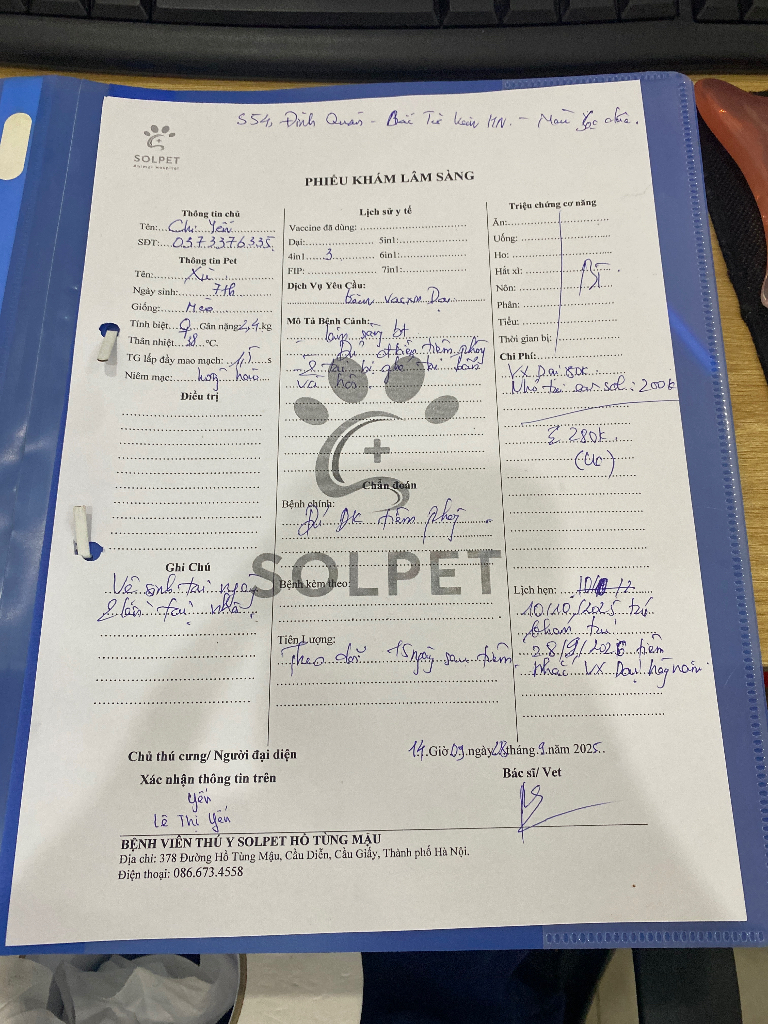 S54 Đình Quán - Bắc Từ Liêm HN. - Màu
SOLPET
Animal Hospital
PHIẾU KHÁM LÂM SÀNG
Thông tin chủ
Tên: Chị Yến
SĐT: 0373376335
Thông tin Pet
Tên: Xù
Ngày sinh: 7th
Giống: Mèo
Tính biệt: ♀ Cân nặng: 2,4 kg
Thân nhiệt: 38 °C.
TG lấp đầy mao mạch: 1,5 s
Niêm mạc: hồng hào
Điều trị
Ghi Chú
Vệ sinh tai ngày
2 lần tại nhà.
Lịch sử y tế
Vaccine đã dùng:
Dại: 5in1:
4in1 3 6in1:
FIP: 7in1:
Dịch Vụ Yêu Cầu:
tiêm vacxin Dại
Mô Tả Bệnh Cảnh:
lâm sàng bt
Đủ tiêm phòng
2 tai bị tai bẩn
và hôi
Chẩn đoán
Bệnh chính:
Đủ ĐK tiêm phòng
SOLPET
Bệnh kèm theo:
Tiên Lượng:
Theo dõi 15 ngày sau tiêm
Triệu chứng cơ năng
Ăn:
Uống:
Ho:
Hắt xì:
Nôn:
Phân:
Tiểu:
Thời gian bị:
BT
Chi Phí:
VX Dại 80k
Nhỏ tai sol: 200k
Σ 280k
(Ck)
Lịch hẹn:
10/10/2025 tái
khám tai
28/9/2026 tiêm
nhắc VX Dại hằng năm.
14 Giờ 09 ngày 28 tháng 9 năm 2025.
Chủ thú cưng/ Người đại diện
Xác nhận thông tin trên
Yến
Lê Thị Yến
Bác sĩ/ Vet
BỆNH VIỆN THÚ Y SOLPET HỒ TÙNG MẬU
Địa chỉ: 378 Đường Hồ Tùng Mậu, Cầu Diễn, Cầu Giấy, Thành phố Hà Nội.
Điện thoại: 086.673.4558